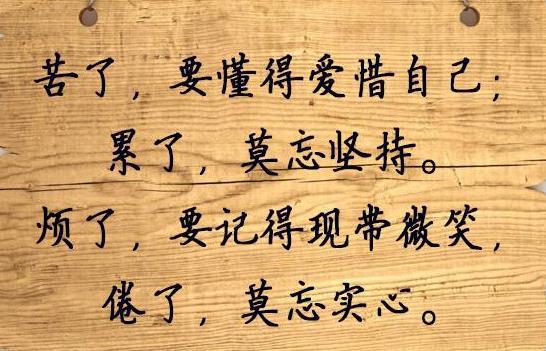 苦了，要懂得爱惜自己；
累了，莫忘坚持。
烦了，要记得现带微笑，
倦了，莫忘实心。